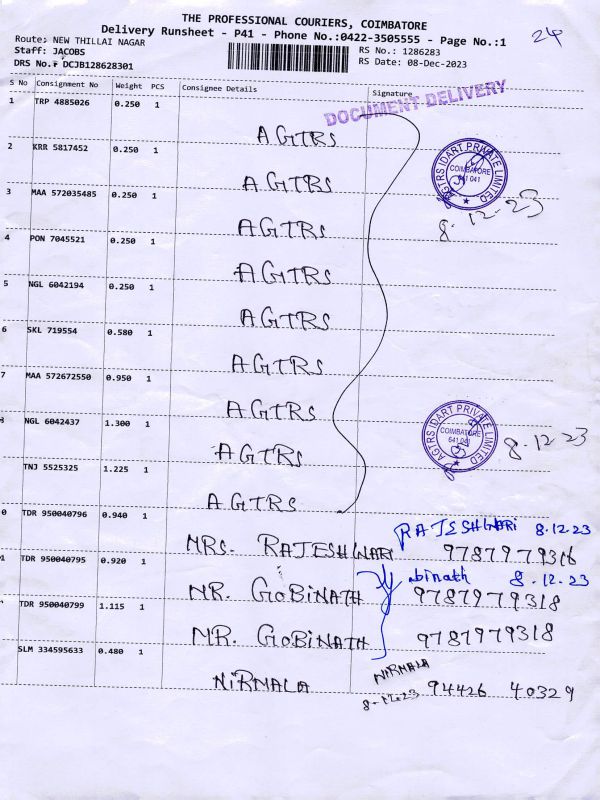 THE PROFESSIONAL COURIERS, COIMBATORE
Delivery Runsheet - P41 - Phone No.:0422-3505555 - Page No.:1
Route: NEW THILLAI NAGAR
Staff: JACOBS
DRS No.: DCJB128628301
RS No.: 1286283
RS Date: 08-Dec-2023
24
S No Consignment No Weight PCS Consignee Details Signature
DOCUMENT DELIVERY
1 TRP 4885026 0.250 1 AGTRS
2 KRR 5817452 0.250 1 AGTRS
AGTRS IDART PRIVATE LIMITED
COIMBATORE
641 041
8.12-23
3 MAA 572035485 0.250 1 AGTRS
4 PON 7045521 0.250 1 AGTRS
5 NGL 6042194 0.250 1 AGTRS
6 SKL 719554 0.580 1 AGTRS
7 MAA 572672550 0.950 1 AGTRS
8 NGL 6042437 1.300 1 AGTRS
AGTRS IDART PRIVATE LIMITED
COIMBATORE
641 041
8.12.23
TNJ 5525325 1.225 1 AGTRS
0 TDR 950040796 0.940 1 MRS. RAJESHWARI
RAJESHWARI 8.12.23
9787979316
1 TDR 950040795 0.920 1 MR. GOBINATH
binath 8.12.23
9787979318
TDR 950040799 1.115 1 MR. GOBINATH 9787979318
SLM 334595633 0.480 1 NIRMALA
NIRMALA
8-12-23 94426 40329